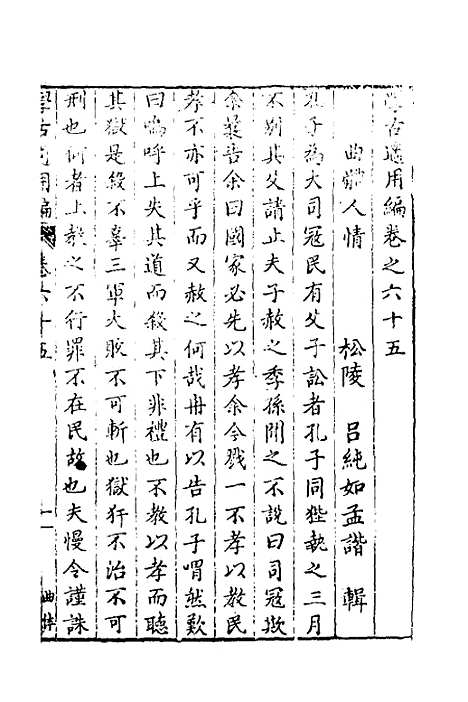 學古適用編卷之六十五
曲體人情　松陵　呂純如孟諧　輯
孔子為大司冦民有父子訟者孔子同狴執之三月
不別其父請止夫子赦之季孫聞之不說曰司冦欺
余曩告余曰國家必先以孝余今戮一不孝以教民
孝不亦可乎而又赦之何哉冉有以告孔子喟然歎
曰嗚呼上失其道而殺其下非禮也不教以孝而聽
其獄是殺不辜三軍大敗不可斬也獄犴不治不可
刑也何者上教之不行罪不在民故也夫慢令謹誅
學古適用編　卷六十五　一　曲體